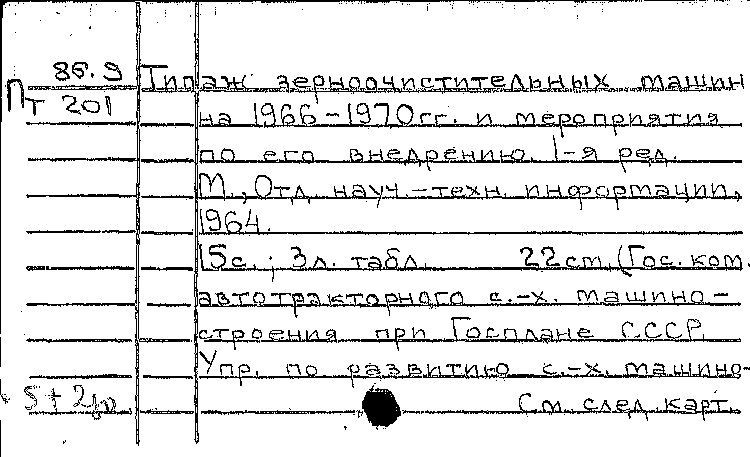 86.9 Типаж зерноочистительных машин
Пт 201 на 1966-1970гг. и мероприятия
по его внедрению. 1-я ред.
М., Отд. науч.-техн. информации,
1964.
15с.; 3л. табл. 22см. (Гос. ком.
автотракторного с.-х. машино-
строения при Госплане СССР.
Упр. по развитию с.-х. машино-
См. след. карт.